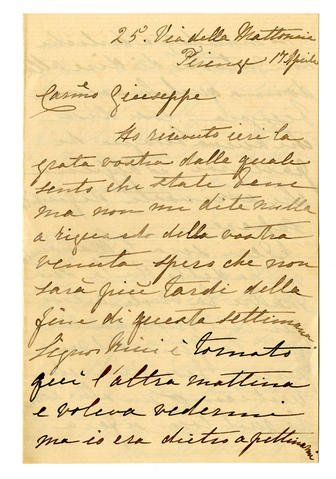 25° Via della Mattonaia
Firenze 17 Aprile
Carmo Giuseppe
Ho ricevuto ieri la
grata vostra dalle quale
sento che state bene
ma non mi dite nulla
a riguardo della vostra
venuta spero che non
sarà più tardi della
fine di questa settimana
Signor Nini è tornato
qui l'altra mattina
e voleva vedermi
ma io era dietro a pettinarmi